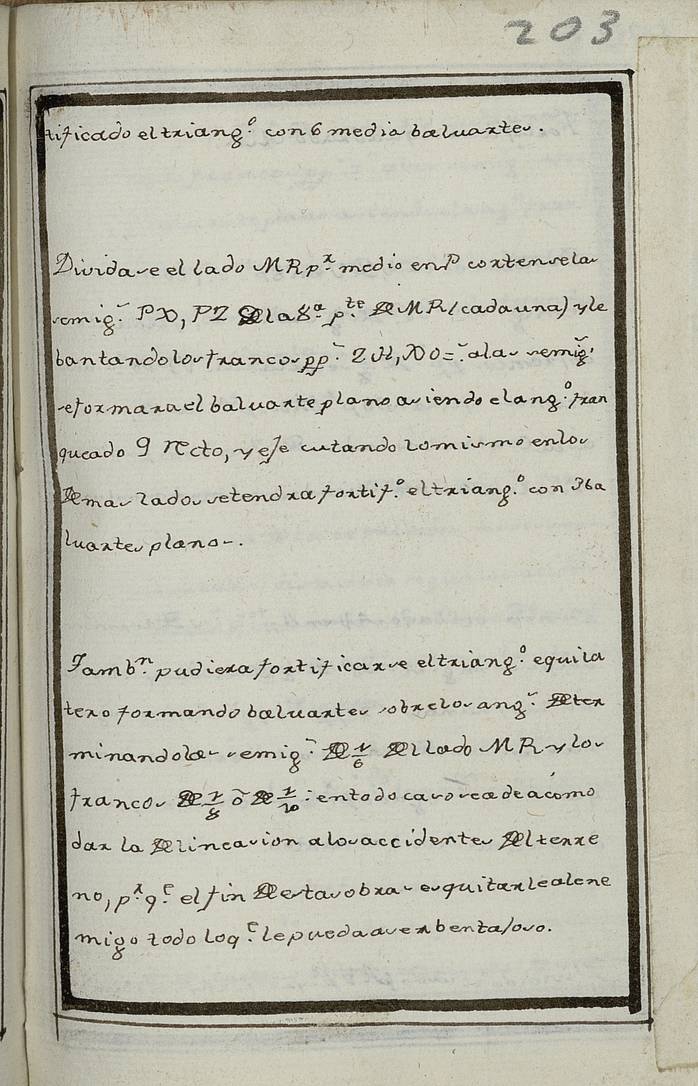 203
tificado el triang.º con 6 media baluartes.
Dividase el lado MR p.r medio en P cortense las
semig.s PX, PZ De la 8.ª p.te De MR (cada una) y le
bantando los francos pp.s ZH, XO =.s a las semig.s
se formara el baluarte plano asiendo el ang.º fran
queado 9 recto, y ejecutando lo mismo en los
Demas lados se tendra fortif.º el triang.º con 3 ba
luartes planos.
Tamb.n pudiera fortificarse el triang.º equila
tero formando baluartes sobre los ang.s Deter
minando las semig.s De 1/6 Del lado MR y los
francos De 1/8 ō De 1/10: en todo caso se a de acomo
dar la Delineasion a los accidentes Del terre
no, p.r q.e el fin De estas obras es quitarle al ene
migo todo lo q.e le pueda aser bentajoso.